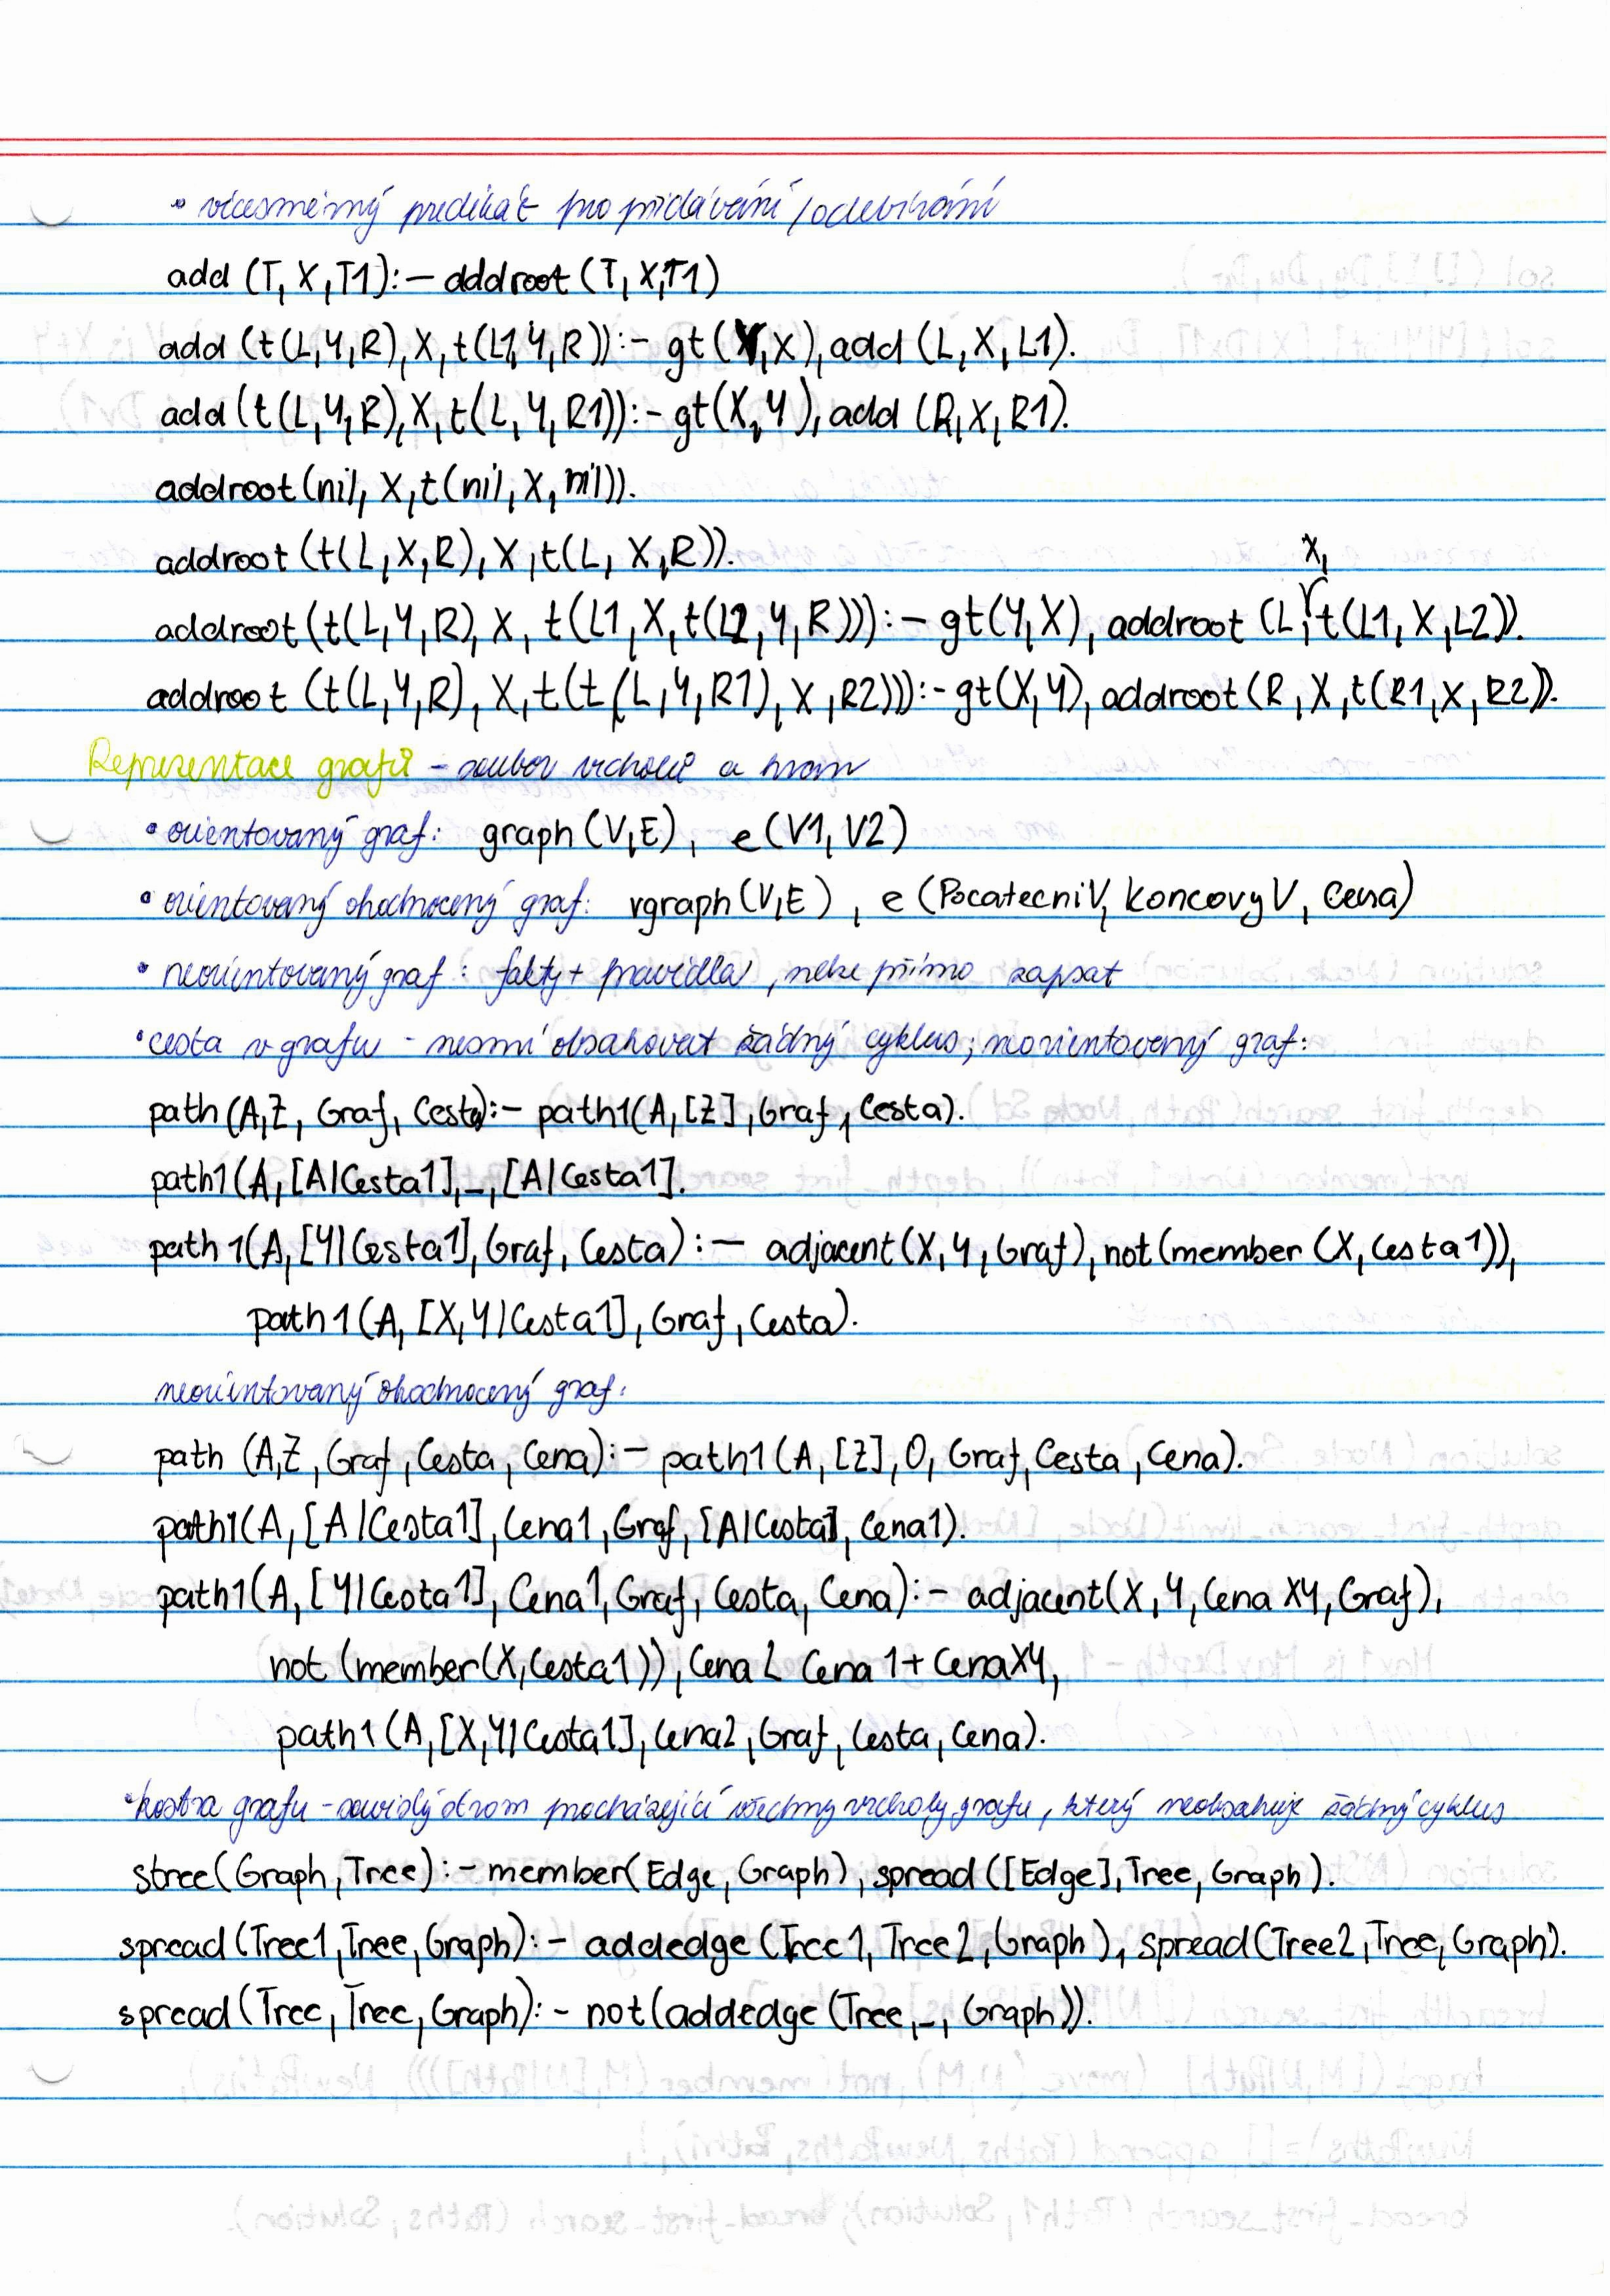 • vícesměrný predikát pro přidávání/odebírání
add (T, X, T1):- addroot (T, X, T1)
add (t(L,Y,R), X, t(L1,Y,R)):- gt(Y,X), add (L, X, L1).
add (t(L,Y,R), X, t(L,Y,R1)):- gt(X,Y), add (R, X, R1).
addroot (nil, X, t(nil, X, nil)).
addroot (t(L,X,R), X, t(L, X, R)).
addroot (t(L,Y,R), X, t(L1, X, t(L2, Y, R))):- gt(Y,X), addroot (L, X, t(L1, X, L2)).
addroot (t(L,Y,R), X, t(t(L,Y,R1), X, R2))):- gt(X,Y), addroot (R, X, t(R1, X, R2)).
Reprezentace grafů - soubor vrcholů a hran
• orientovaný graf: graph (V,E), e (V1, V2)
• orientovaný ohodnocený graf: vgraph (V,E), e (PocatecniV, KoncovyV, Cena)
• neorientovaný graf: fakty + pravidla, nelze přímo zapsat
• cesta v grafu - nesmí obsahovat žádný cyklus; neorientovaný graf:
path (A,Z, Graf, Cesta):- path1(A, [Z], Graf, Cesta).
path1 (A, [A|Cesta1], _, [A|Cesta1].
path1(A, [Y|Cesta1], Graf, Cesta):- adjacent (X, Y, Graf), not (member (X, Cesta1)),
path1 (A, [X,Y|Cesta1], Graf, Cesta).
neorientovaný ohodnocený graf:
path (A,Z, Graf, Cesta, Cena):- path1 (A, [Z], 0, Graf, Cesta, Cena).
path1(A, [A|Cesta1], Cena1, Graf, [A|Cesta1], Cena1).
path1(A, [Y|Cesta1], Cena1, Graf, Cesta, Cena):- adjacent(X, Y, CenaXY, Graf),
not (member(X, Cesta1)), Cena2 Cena1 + CenaXY,
path1 (A, [X,Y|Cesta1], Cena2, Graf, Cesta, Cena).
• kostra grafu - souvislý strom procházející všechny vrcholy grafu, který neobsahuje žádný cyklus
stree(Graph, Tree):- member(Edge, Graph), spread ([Edge], Tree, Graph).
spread (Tree1, Tree, Graph):- addedge (Tree1, Tree2, Graph), spread(Tree2, Tree, Graph).
spread (Tree, Tree, Graph):- not (addedge (Tree, _, Graph)).